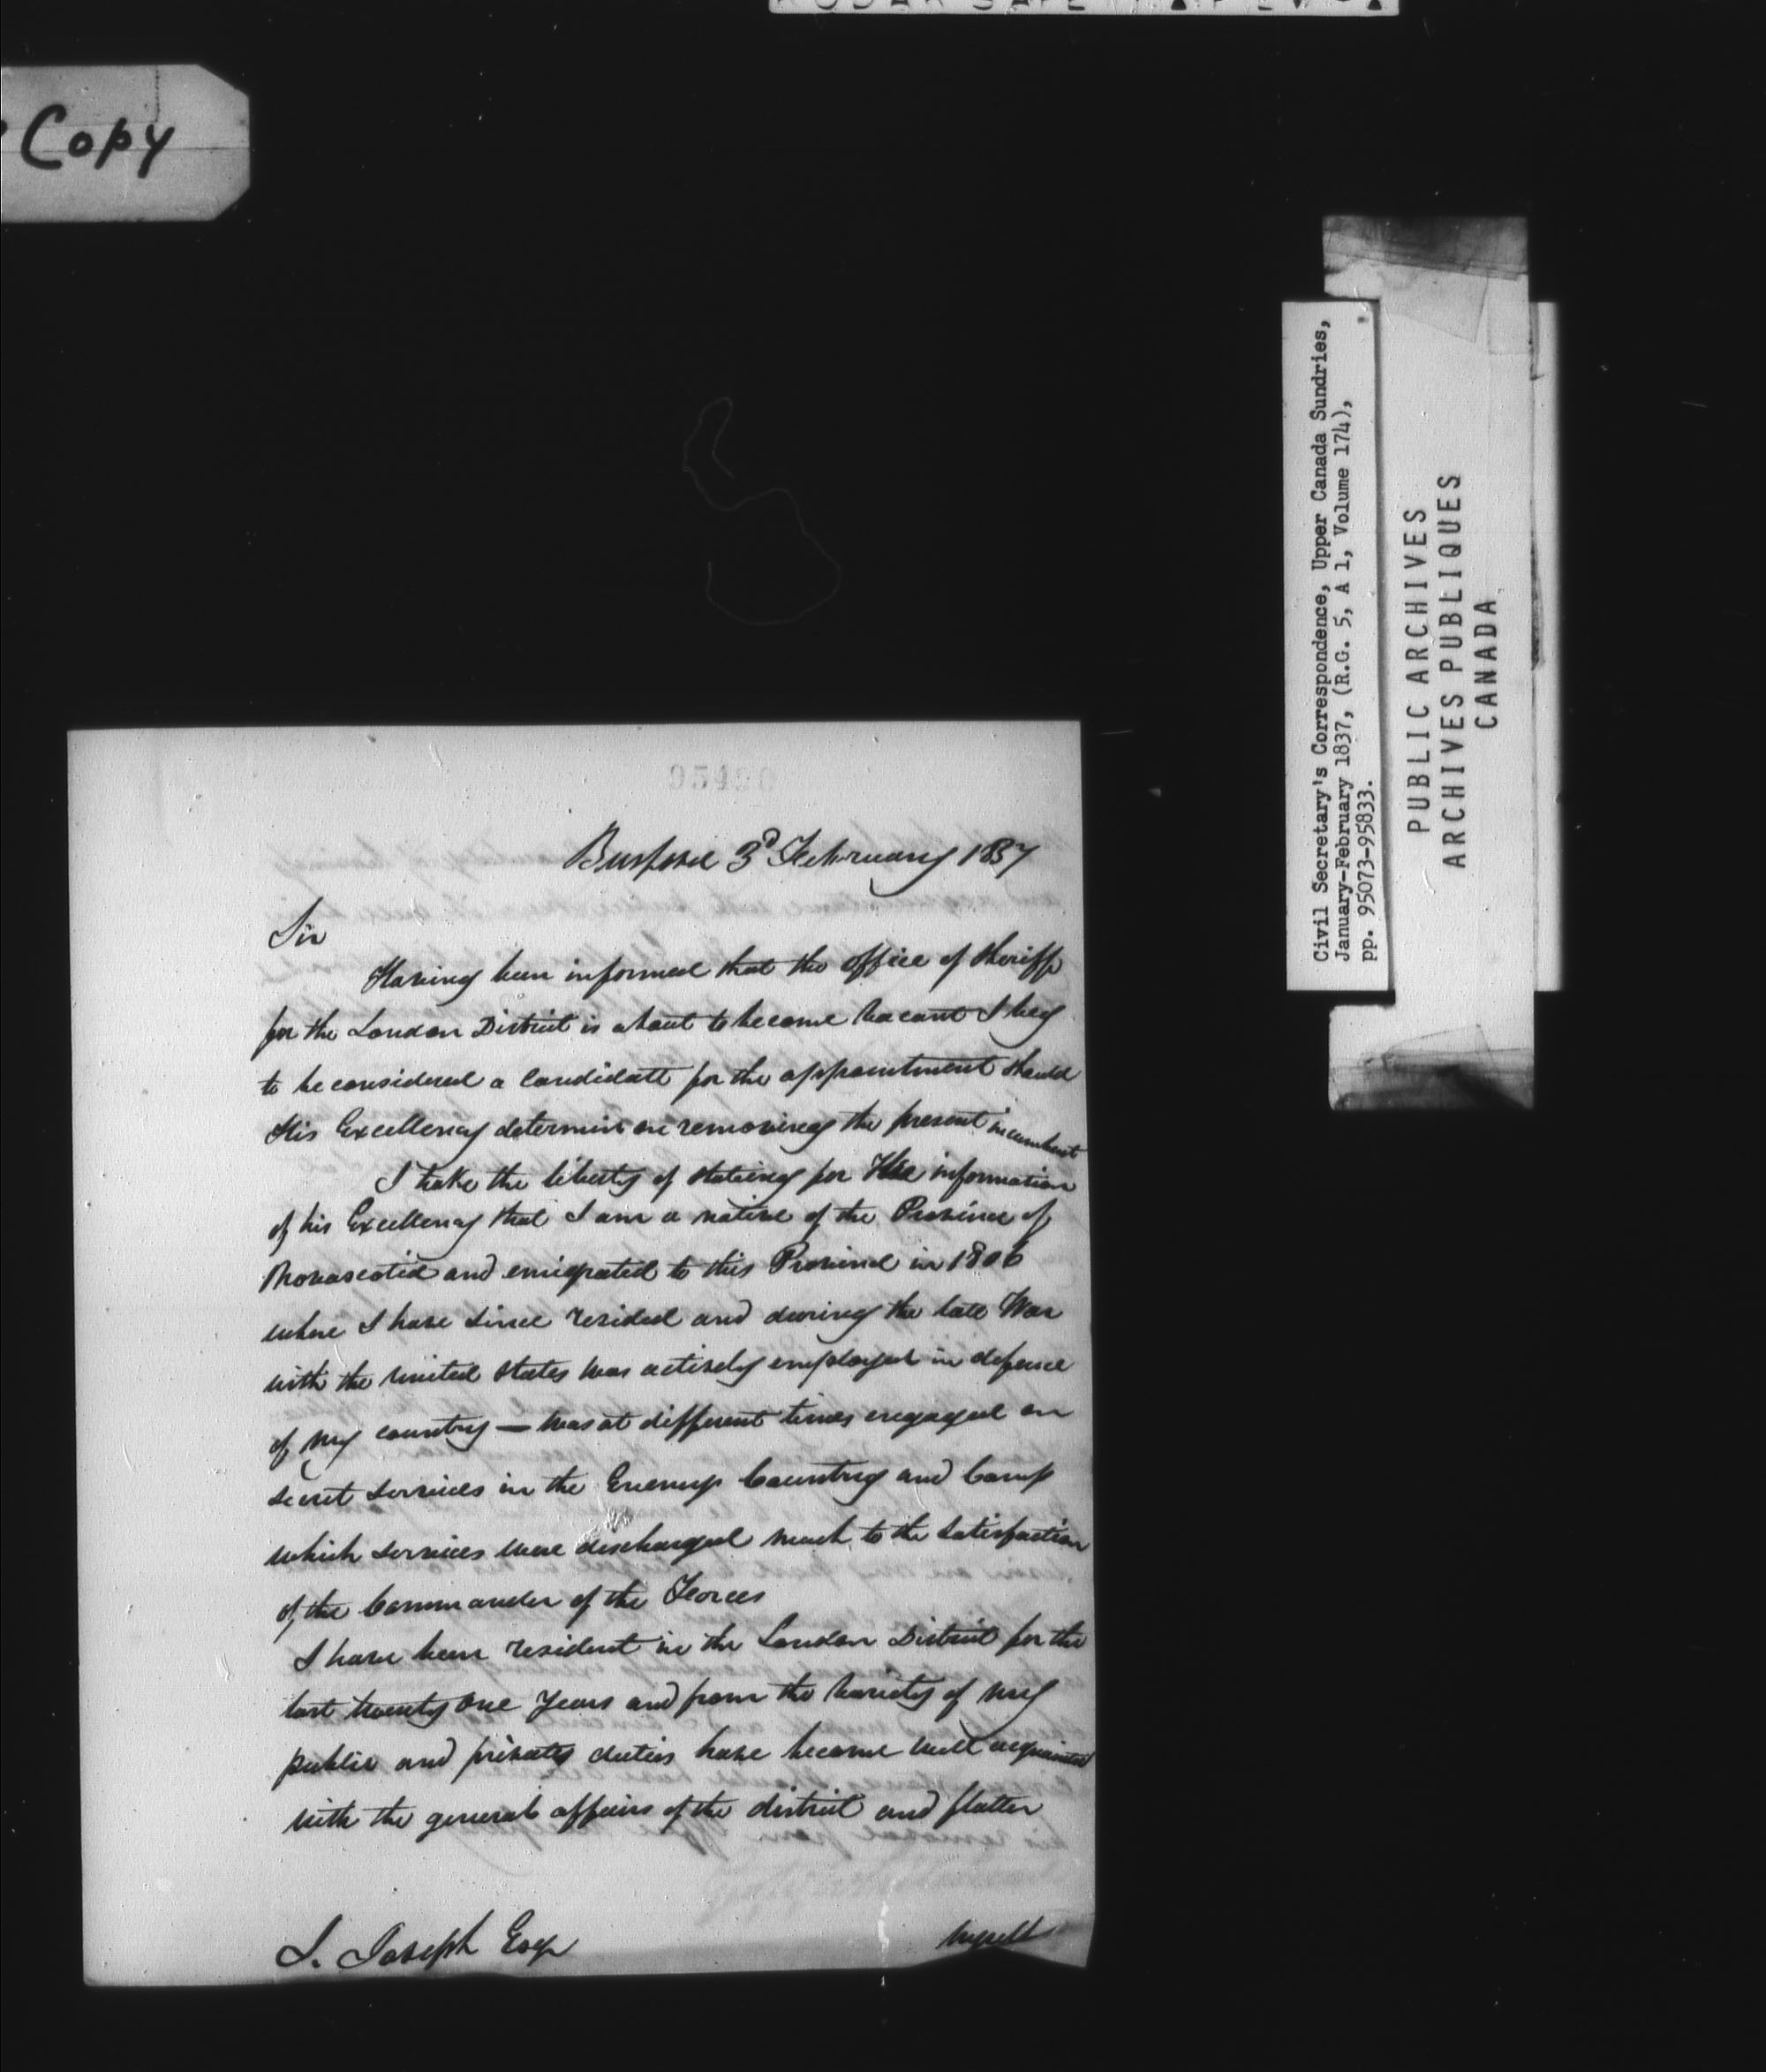 Copy
Civil Secretary's Correspondence, Upper Canada Sundries,
January-February 1837, (R.G. 5, A 1, Volume 174),
pp. 95073-95833.
PUBLIC ARCHIVES
ARCHIVES PUBLIQUES
CANADA
Burford 3d February 1837
Sir
Having been informed that the office of Sheriff
for the London District is about to become vacant I beg
to be considered a Candidate for the appointment should
His Excellency determine on removing the present incumbent
I take the liberty of stating for the information
of his Excellency that I am a native of the Province of
Novascotia and emigrated to this Province in 1806
where I have since resided and during the late War
with the United States was actively employed in defence
of my country — was at different times engaged on
secret services in the Enemys Country and Camp
which services were discharged much to the satisfaction
of the Commander of the Forces
I have been resident in the London District for the
last twenty one years and from the variety of my
public and private duties have become well acquainted
with the general affairs of the district and flatter
myself
J. Joseph Esqr